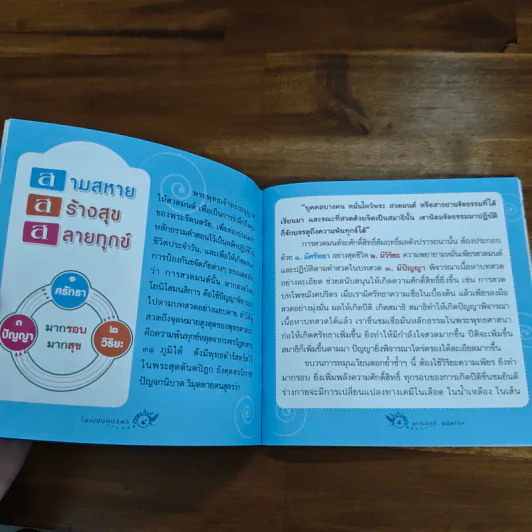 สามสหาย
สร้างสุข
สลายทุกข์
๑
ศรัทธา
๓
ปัญญา
มากรอบ
มากสุข
๒
วิริยะ
พระพุทธเจ้าทรงอนุญาต
ให้สวดมนต์ เพื่อเป็นการรำลึกถึงคุณ
ของพระรัตนตรัย
หลักธรรมคำสอนไว้เป็นหลักปฏิบัติใน
ชีวิตประจำวัน
การป้องกันขจัดภัยต่างๆ
ว่า การสวดมนต์นั้น หากสวดโดย
โยนิโสมนสิการ คือใช้ปัญญาพิจารณา
ไปตามบทสวดอย่างแยบคาย
สวดถึงจุดหมายสูงสุดของพุทธศาสนา
คือความพ้นทุกข์หลุดจากพรหมโลก
๓๑ ภูมิได้ ดังมีพุทธดำรัสตรัสไว้
ในพระสุตตันตปิฎก อังคุตตรนิกาย
ปัญจกนิบาต วิมุตตายตนสูตรว่า
"บุคคลบางคน หมั่นไหว้พระ สวดมนต์ หรือสาธยายข้อธรรมที่ได้
เรียนมา และขณะที่สวดด้วยจิตเป็นสมาธินั้น เขาน้อมข้อธรรมมาปฏิบัติ
ก็จักบรรลุถึงความพ้นทุกข์ได้"
การสวดมนต์จะศักดิ์สิทธิ์สัมฤทธิ์ผลดังปรารถนานั้น ต้องประกอบ
ด้วย ๑. มีศรัทธา อย่างสุดชีวิต ๒. มีวิริยะ ความพยายามหมั่นเพียรสวดมนต์
และปฏิบัติตามคำสวดในบทสวด ๓. มีปัญญา พิจารณาเนื้อหาบทสวด
อย่างละเอียด ช่วยสนับสนุนให้เกิดความศักดิ์สิทธิ์ยิ่งขึ้น เช่น การสวด
บทโพชฌังคปริตร เมื่อเรามีศรัทธาความเชื่อในเบื้องต้น แล้วเพียรลงมือ
สวดอย่างมุ่งมั่น ผลให้เกิดปีติ เกิดสมาธิ สมาธิทำให้เกิดปัญญาพิจารณา
เนื้อหาบทสวดได้แล้ว เราชื่นชมเชื่อมั่นหลักธรรมในพระพุทธศาสนา
ก่อให้เกิดศรัทธาเพิ่มขึ้น ยิ่งทำให้มีกำลังใจสวดมากขึ้น ปีติจะเพิ่มขึ้น
สมาธิก็เพิ่มขึ้นตามมา ปัญญายิ่งพิจารณาไตร่ตรองได้ละเอียดมากขึ้น
ขบวนการหมุนเวียนตอกย้ำซ้ำๆ นี้ ต้องใช้วิริยะความเพียร ยิ่งทำ
มากรอบ ยิ่งเพิ่มพลังความศักดิ์สิทธิ์ ทุกรอบของการเกิดปีติชื่นชมยินดี
ร่างกายจะมีการเปลี่ยนแปลงทางเคมีในเลือด ในน้ำเหลือง ในเส้น
โพชฌังคปริตร
๔
๕